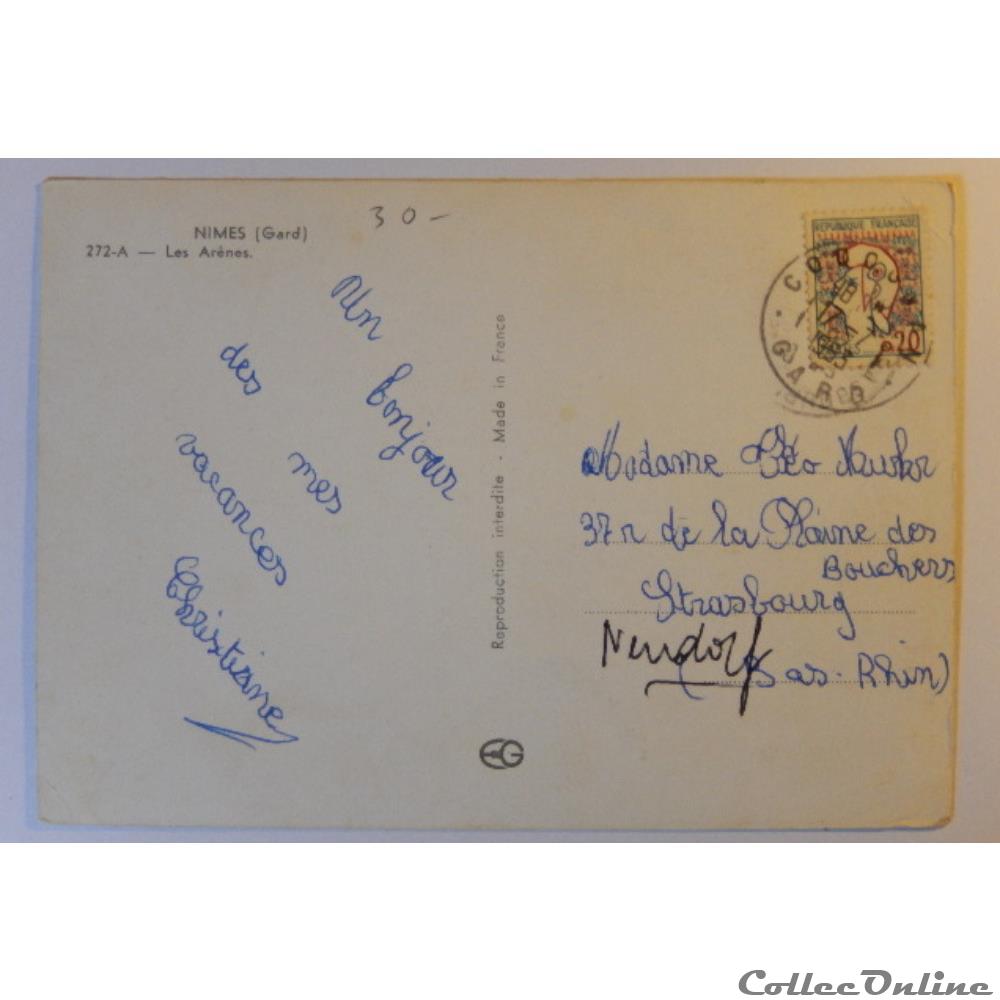 NIMES (Gard)
272-A — Les Arènes.
30-
Un bonjour
des mes
vacances
Christiane
Reproduction interdite - Made in France
EG
REPUBLIQUE FRANÇAISE
0,20
GARD
Madame
37 r de la Plaine des
Bouchers
Strasbourg
Neudorf
(Bas-Rhin)
CollecOnline